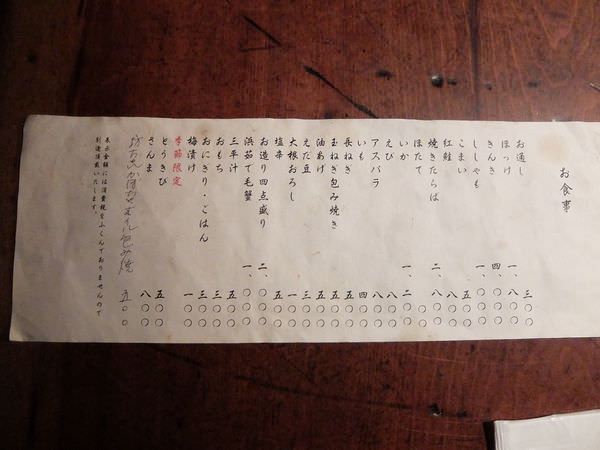 お食事
お通し 三〇〇
ほっけ 一、八〇〇
きんき 四、〇〇〇
ししゃも 一、〇〇〇
こまい 五〇〇
紅鮭 八〇〇
焼きたらば 二、八〇〇
ほたて
いか 一、二〇〇
えび 八〇〇
アスパラ 八〇〇
いも 四〇〇
長ねぎ 五〇〇
玉ねぎ包み焼き 五〇〇
油あげ 五〇〇
えだ豆 三〇〇
大根おろし 一〇〇
塩辛 五〇〇
お造り四点盛り 二、〇〇〇
浜茹で毛蟹 一、〇〇〇
三平汁 五〇〇
おもち 三〇〇
おにぎり・ごはん 三〇〇
梅漬け 一〇〇
季節限定
とうきび 五〇〇
さんま 八〇〇
坊ちゃんかぼちゃホイル包み焼 五〇〇
表示金額には消費税をふくんでおりませんので
別途頂戴いたします。